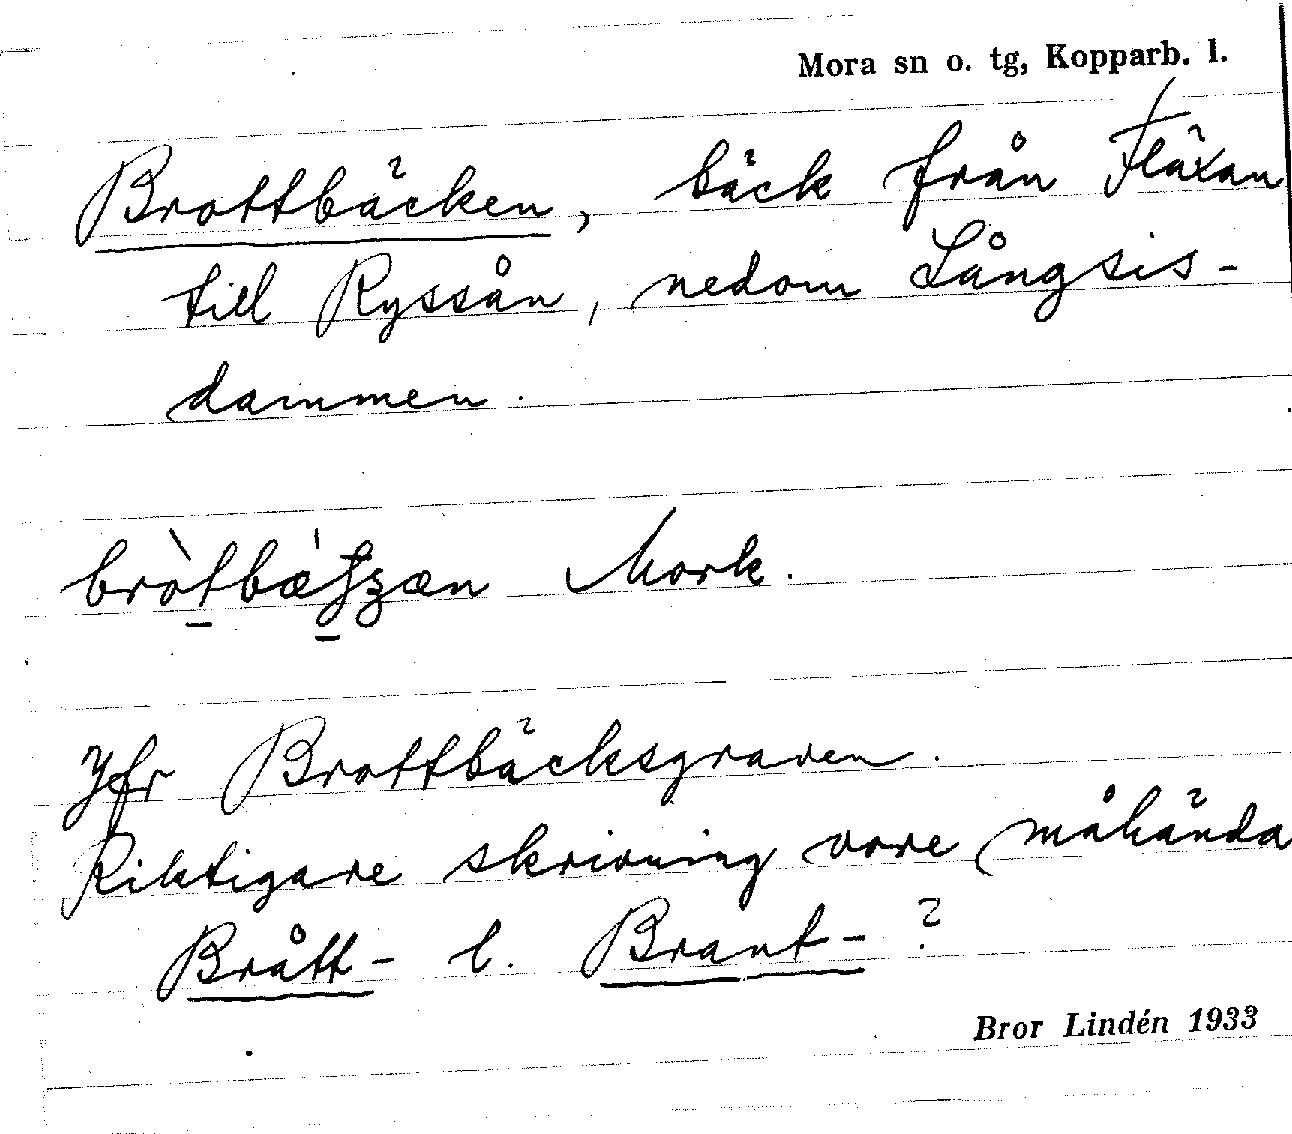 Mora sn o. tg, Kopparb. l.
Brottbäcken, bäck från Fläxan
till Ryssån, nedom Långsis-
dammen.
Mork.
Jfr Brottbäcksgraven.
Riktigare skrivning vore måhända
Brått- l. Brant-?
Bror Lindén 1933